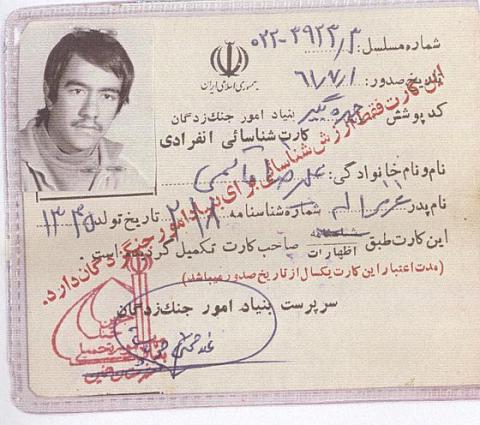 شماره مسلسل: ۰۲۲-۳۹۲۳/۳
جمهوری اسلامی ایران
تاریخ صدور: ۶۱/۷/۱
کد پوشش جیره‌گیر بنیاد امور جنگ زدگان
کارت شناسائی انفرادی
نام و نام خانوادگی:
نام پدر عزیزاله شماره شناسنامه ۲۱۸ تاریخ تولد ۱۳۴۰
این کارت طبق شناسنامه اظهارات صاحب کارت تکمیل گردیده است.
(مدت اعتبار این کارت یکسال از تاریخ صدور میباشد)
سرپرست بنیاد امور جنگ زدگان
این کارت فقط ارزش شناسائی برای بنیاد امور جنگ زدگان دارد.